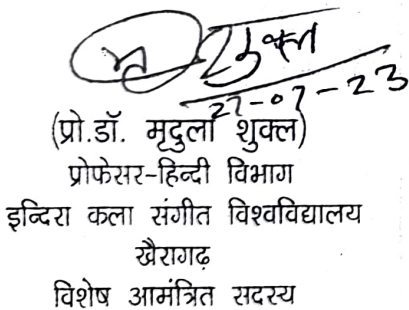 मृ शुक्ल
27-07-23
(प्रो.डॉ. मृदुला शुक्ल)
प्रोफेसर-हिन्दी विभाग
इन्दिरा कला संगीत विश्वविद्यालय
खैरागढ़
विशेष आमंत्रित सदस्य